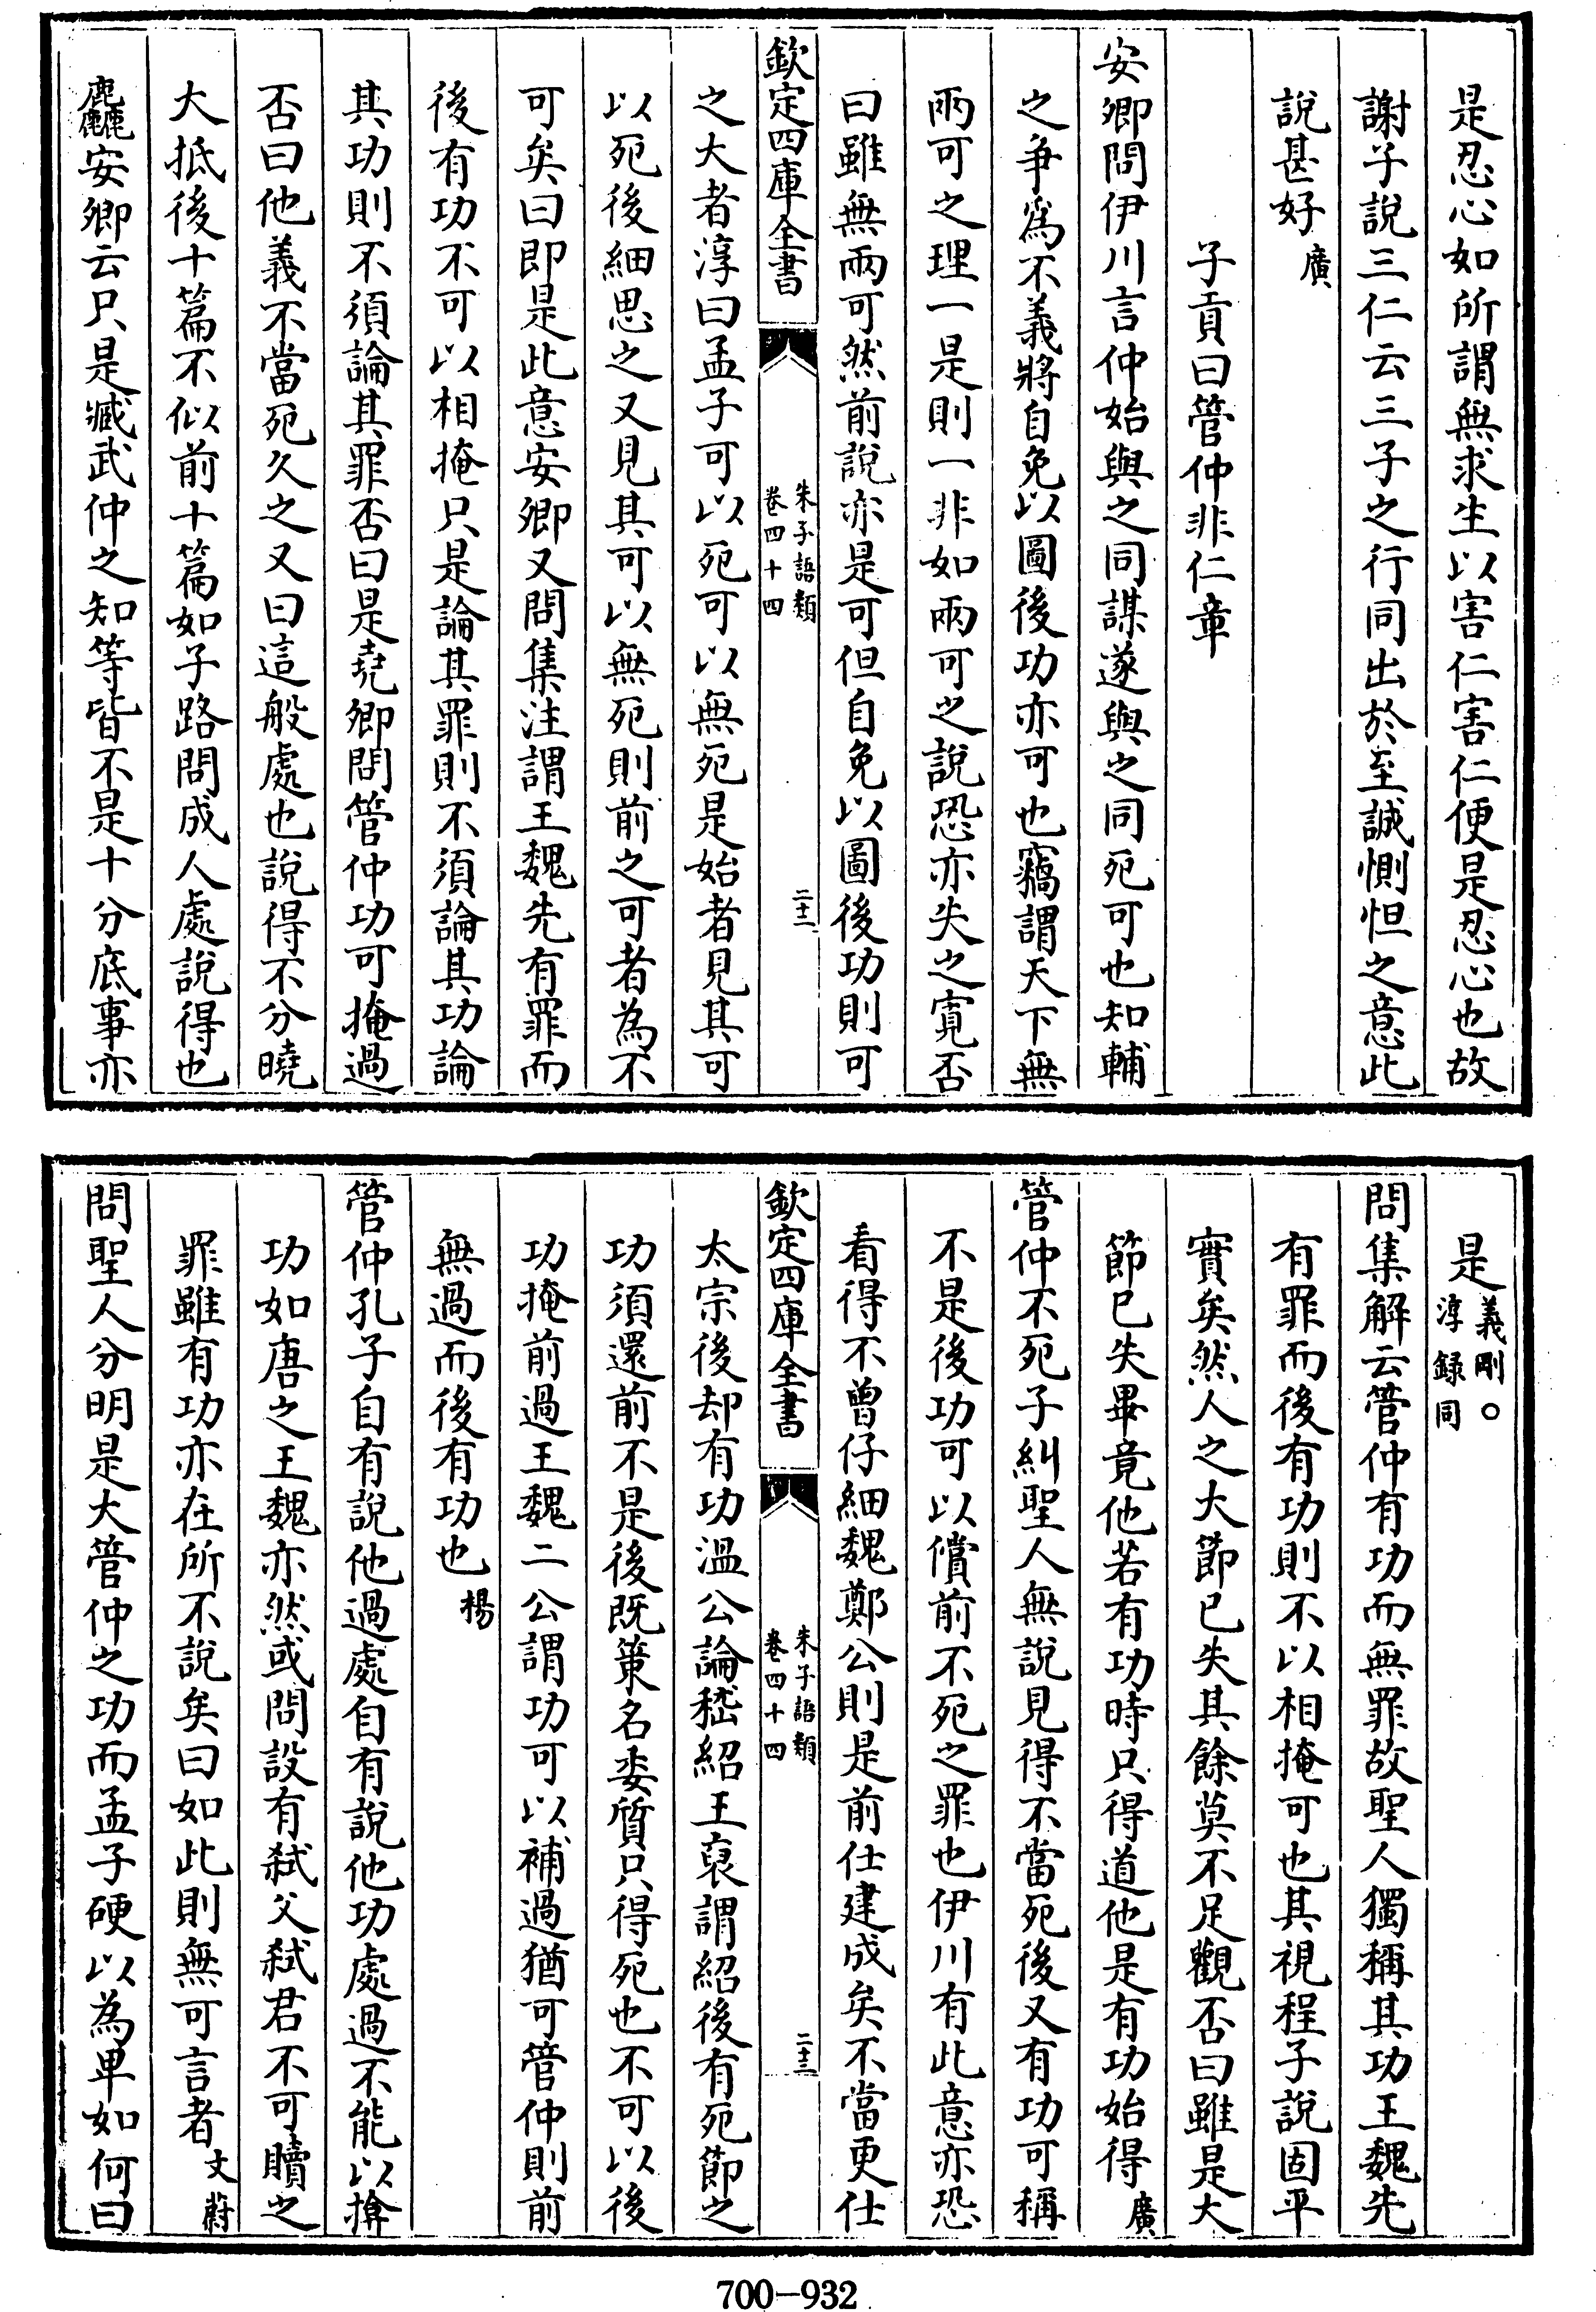 是忍心如所謂無求生以害仁害仁便是忍心也故
謝子說三仁云三子之行同出於至誠惻怛之意此
說甚好廣
子貢曰管仲非仁章
安卿問伊川言仲始與之同謀遂與之同死可也知輔
之爭爲不義將自免以圖後功亦可也竊謂天下無
兩可之理一是則一非如兩可之說恐亦失之寬否
曰雖無兩可然前說亦是可但自免以圖後功則可
欽定四庫全書
朱子語類
卷四十四
二十二
之大者淳曰孟子可以死可以無死是始者見其可
以死後細思之又見其可以無死則前之可者為不
可矣曰即是此意安卿又問集注謂王魏先有罪而
後有功不可以相掩只是論其罪則不須論其功論
其功則不須論其罪否曰是堯卿問管仲功可掩過
否曰他義不當死久之又曰這般處也說得不分曉
大抵後十篇不似前十篇如子路問成人處說得也
麤安卿云只是臧武仲之知等皆不是十分底事亦
是義剛○
淳録同
問集解云管仲有功而無罪故聖人獨稱其功王魏先
有罪而後有功則不以相掩可也其視程子說固平
實矣然人之大節已失其餘莫不足觀否曰雖是大
節已失畢竟他若有功時只得道他是有功始得廣
管仲不死子糾聖人無說見得不當死後又有功可稱
不是後功可以償前不死之罪也伊川有此意亦恐
看得不曽仔細魏鄭公則是前仕建成矣不當更仕
欽定四庫全書
朱子語類
卷四十四
二十三
太宗後却有功溫公論嵇紹王裒謂紹後有死節之
功須還前不是後既策名委質只得死也不可以後
功掩前過王魏二公謂功可以補過猶可管仲則前
無過而後有功也楊
管仲孔子自有說他過處自有說他功處過不能以揜
功如唐之王魏亦然或問設有弑父弑君不可贖之
罪雖有功亦在所不說矣曰如此則無可言者文蔚
問聖人分明是大管仲之功而孟子硬以為卑如何曰
700-932